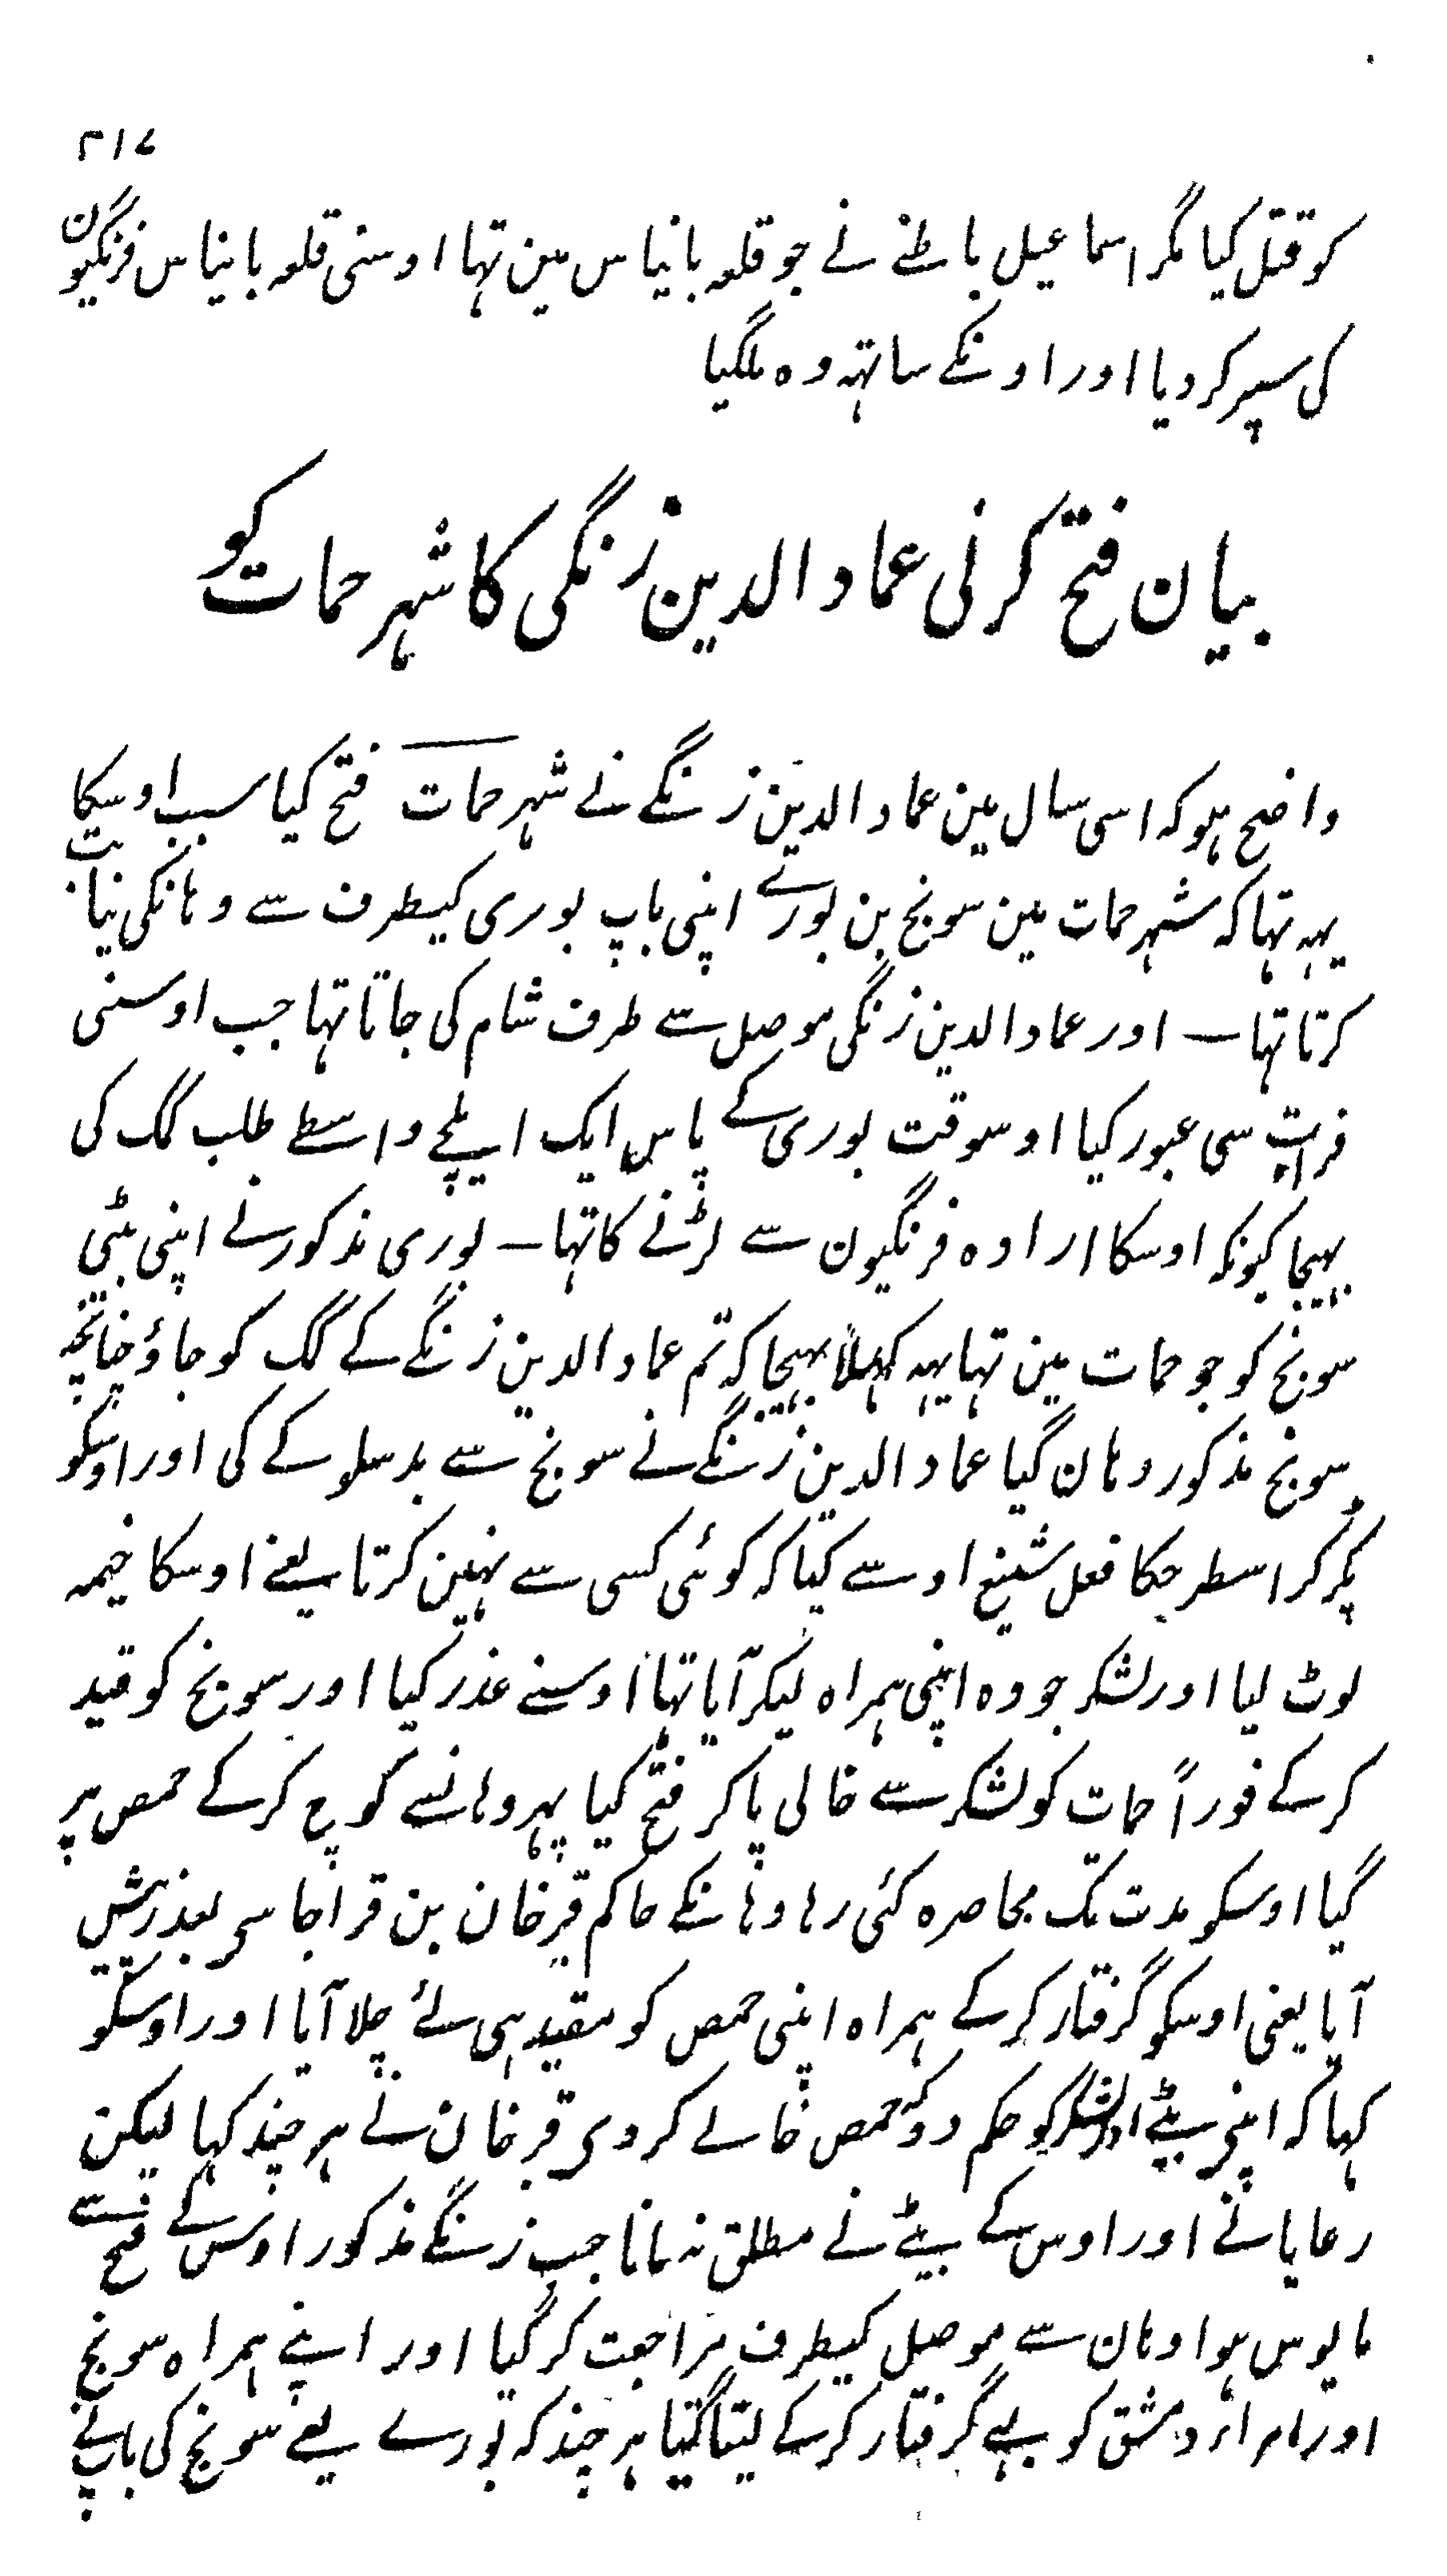 ۲۱۷
کو قتل کیا مگر اسماعیل باطنے نے جو قلعہ بانیاس مین تہا اوسنی قلعہ بانیاس فرنگیون
کی سپر کر دیا اور اونکے ساتہہ وہ ملگیا
بیان فتح کرنی عماد الدین زنگی کا شہر حمات کو
واضح ہو کہ اسی سال مین عماد الدین زنگے نے شہر حمات فتح کیا سبب اوسکا
یہہ تہا کہ شہر حمات مین سونج بن بورے اپنی باپ بوری کیطرف سے وہانکی نیابت
کرتا تہا — اور عماد الدین زنگی موصل سے طرف شام کی جاتا تہا جب اوسنی
فرات سی عبور کیا اوسوقت بوری کے پاس ایک ایلچے واسطے طلب کمک کی
بہیجا کیونکہ اوسکا ارادہ فرنگیون سے لڑنے کا تہا — بوری مذکور نے اپنی بیٹی
سونج کو جو حمات مین تہا یہہ کہلا بہیجا کہ تم عماد الدین زنگے کے کمک کو جاؤ چنانچہ
سونج مذکور وہان گیا عماد الدین زنگے نے سونج سے بد سلوکے کی اور اوسکو
پکڑ کر اسطرحکا فعل شنیع اوسے کیا کہ کوئی کسی سے نہین کرتا یعنے اوسکا خیمہ
لوٹ لیا اور لشکر جو وہ اپنی ہمراہ لیکر آیا تہا اوسنے غدر کیا اور سونج کو قید
کر کے فوراً حمات کو لشکر سے خالی پا کر فتح کیا پہر وہانسے کوچ کر کے حمص پر
گیا اوسکو مدت تک محاصرہ کئی رہا وہانکے حاکم قیرخان بن قراجا سی بعذر پیش
آیا یعنی اوسکو گرفتار کر کے ہمراہ اپنی حمص کو مقید ہی لئے چلا آیا اور اوسکو
کہا کہ اپنی بیٹے اور لشکر کو حکم دو کہ حمص خالے کر دی قیرخان نے ہر چند کہا لیکن
رعایا نے اور اوس کے بیٹے نے مطلق نہ مانا جب زنگے مذکور اوس کے فتح سے
مایوس ہوا وہان سے موصل کیطرف مراجعت کر گیا اور اپنے ہمراہ سونج
اور امراء دمشق کو بہے گرفتار کر کے لیتا گیا ہر چند کہ بورے یعنے سونج کی باپ نے